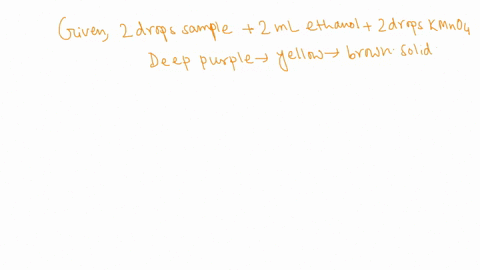 Given, 2 drops sample + 2 mL ethanol + 2 drops KMnO4
Deep purple → yellow → brown solid